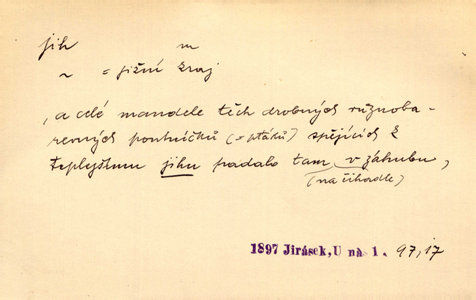 jih m
~ = jižní kraj
„a celé mandele těch drobných různoba-
revných poutníčků (= ptáků) spějících k
teplejšímu jihu padalo tam, v záhubu,
(na čihadle)
1897 Jirásek, U nás 1. 97,17